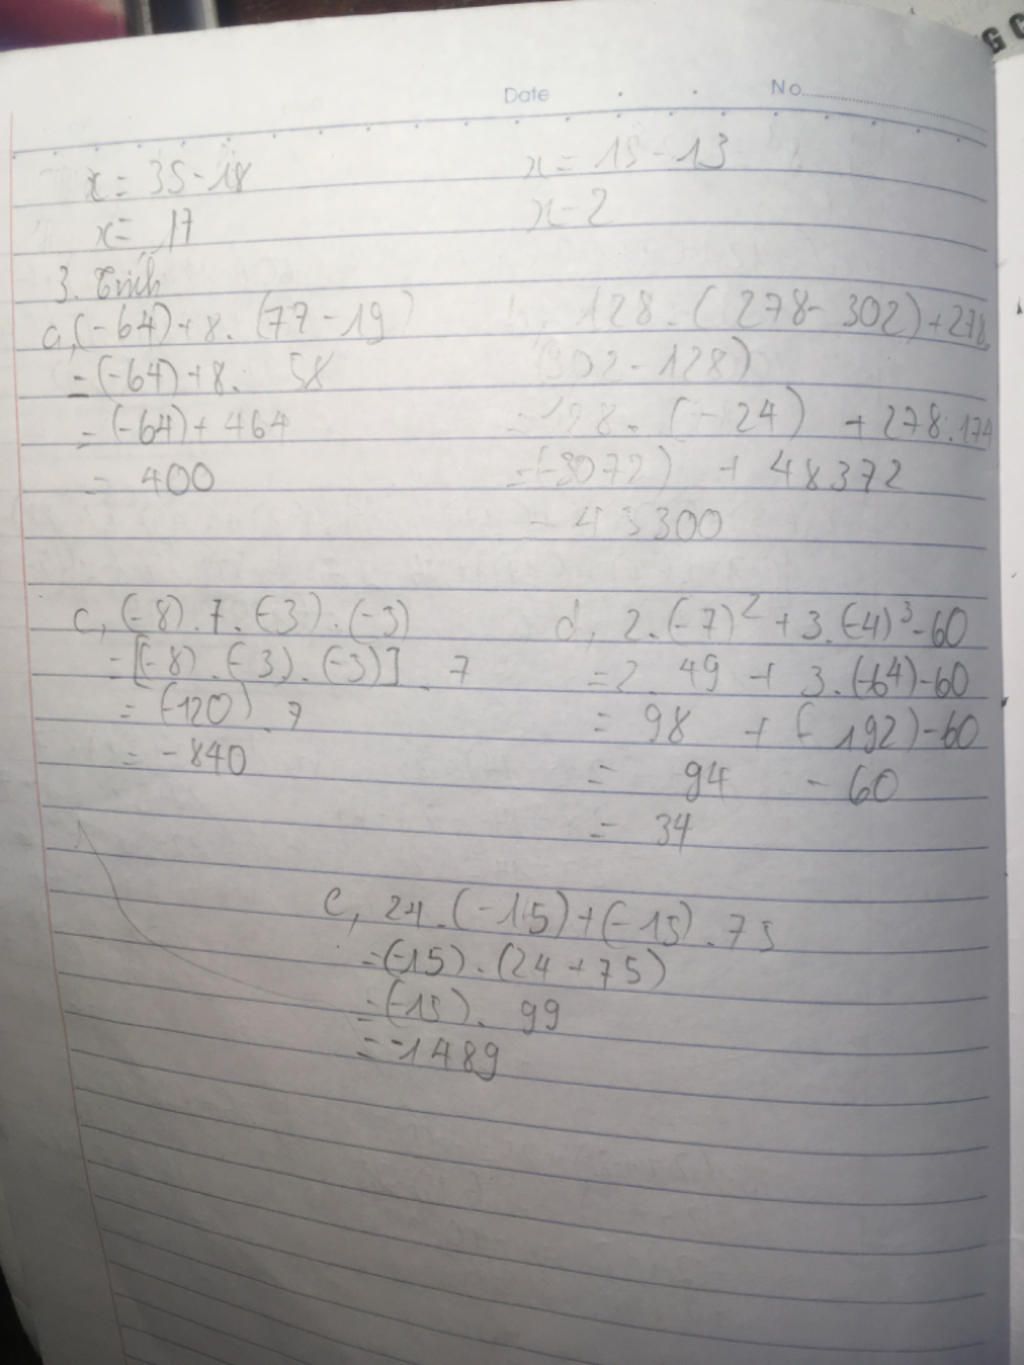 G C
Date No
x = 35 - 18
x = 17
x = 15 - 13
x = 2
3. Tính
a, (-64) + 8. (77 - 19)
= (-64) + 8. 58
= (-64) + 464
= 400
128. (278 - 302) + 278.
(302 - 128)
= 128. (-24) + 278.174
= (-3072) + 48372
= 45300
c, (-8).7.(-3).(-5)
= [(-8).(-3).(-5)].7
= (-120).7
= -840
d, 2.(-7)² + 3.(-4)³ - 60
= 2. 49 + 3.(-64) - 60
= 98 + (-192) - 60
= 94 - 60
= 34
e, 24.(-15) + (-15).75
= (-15).(24 + 75)
= (-15). 99
= -1489